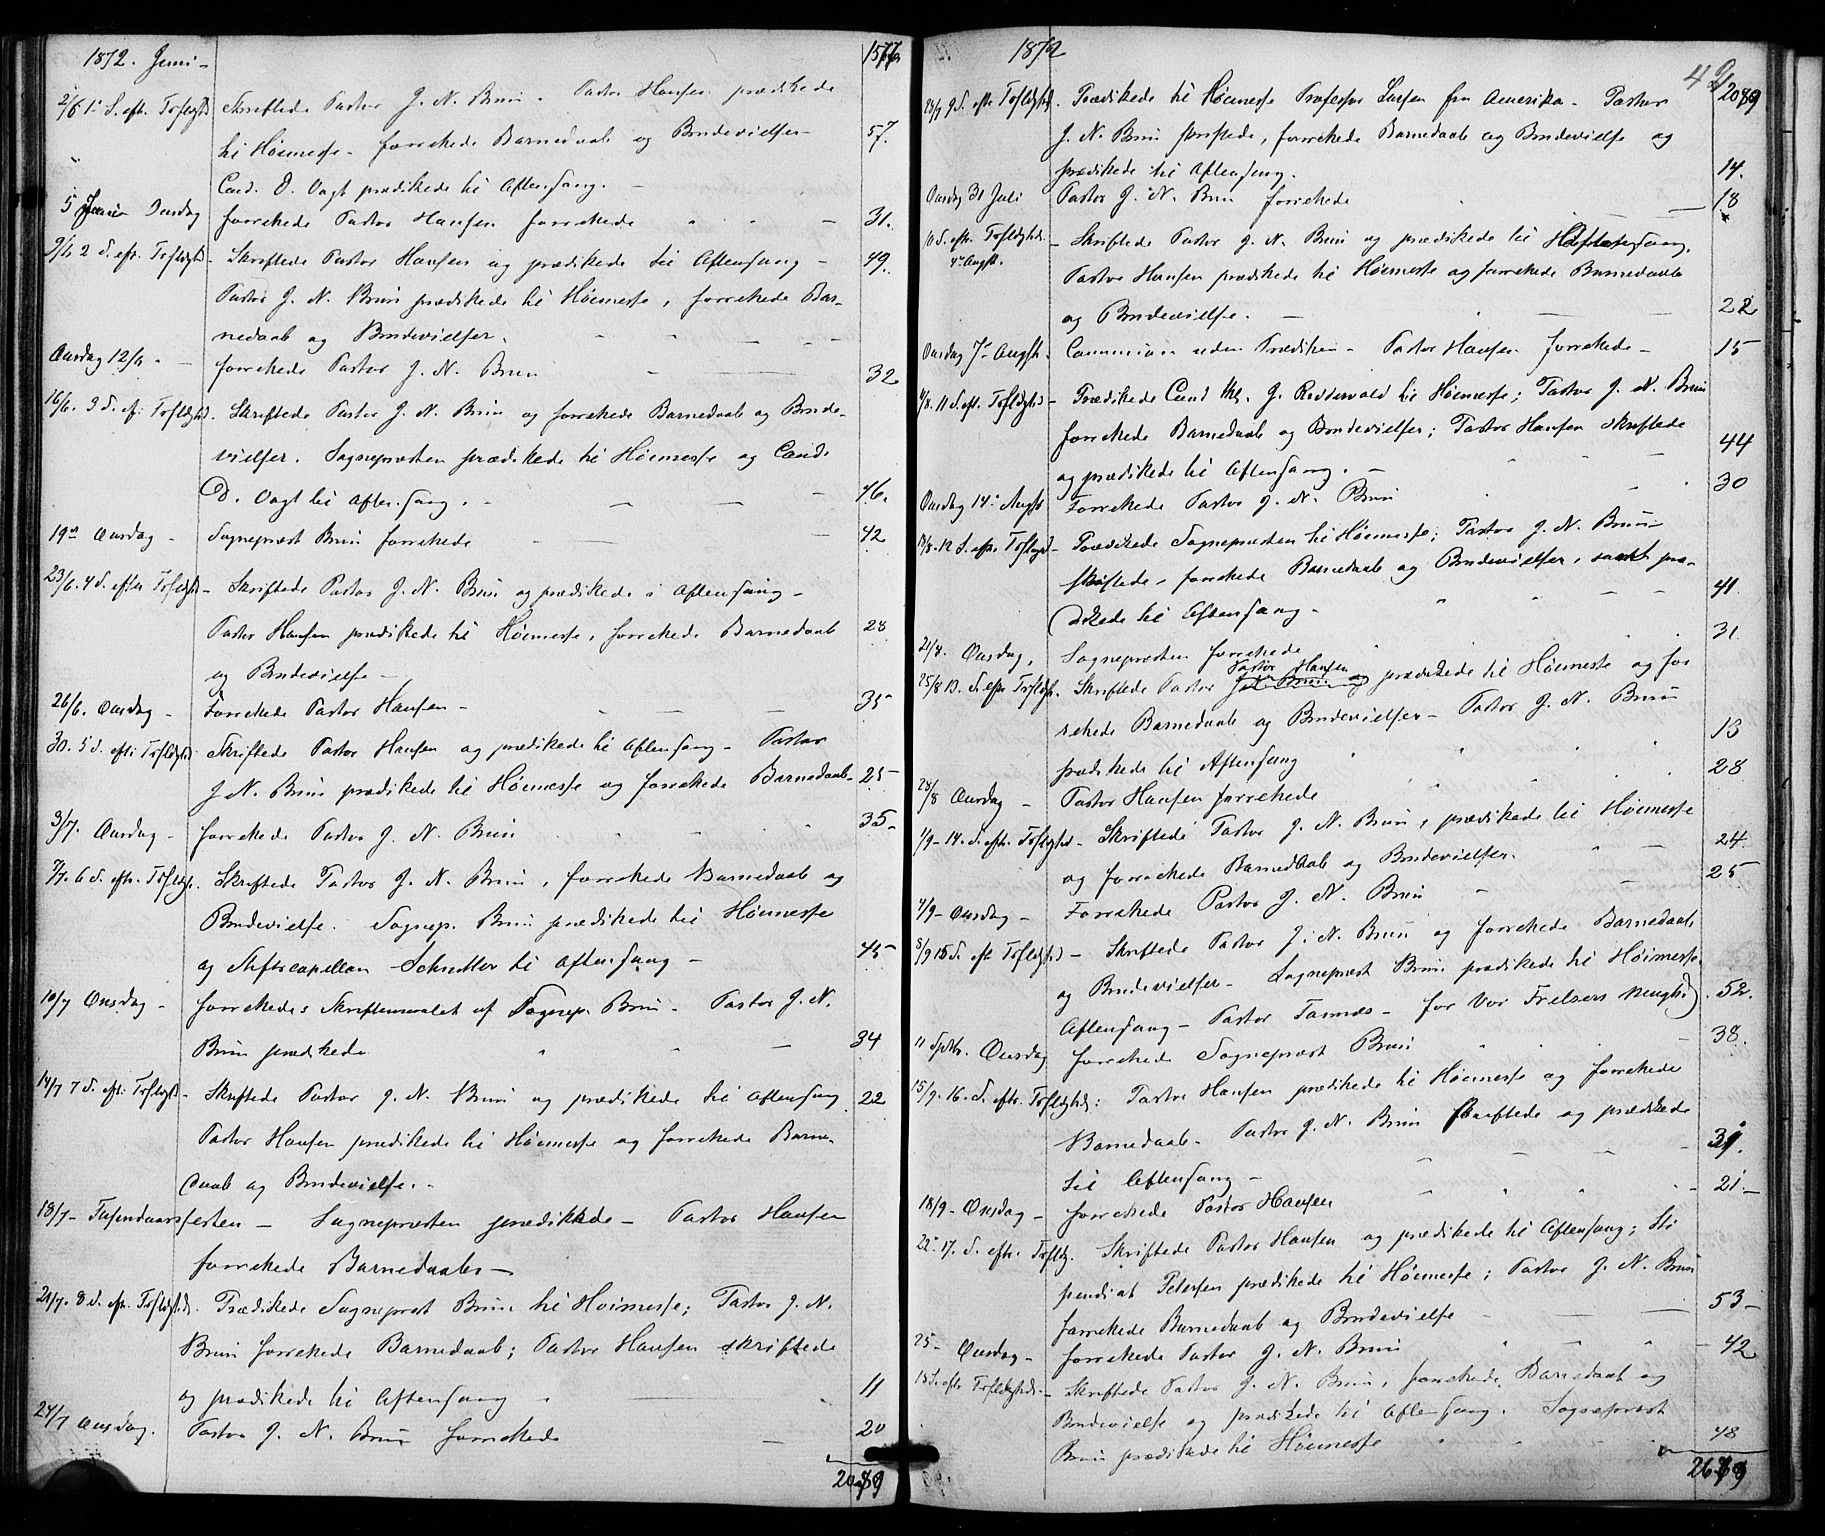 1872. Juni - 1576
2/6 1. S. eft. Trefoldighed Skriftede Pastor J. N. Brun. Pastor Hansen prædikede
til Høimesse - forrettede Barnedaab og Brudevielser 57.
Cand. O. Vogt prædikede til Aftensang. -
5 Juni Onsdag forrettede Pastor Hansen forrettede 31.
9/6 2 S. eft. Trefoldighed - Skriftede Pastor Hansen og prædikede til Aftensang - 49.
Pastor J. N. Brun prædikede til Høimesse, forrettede Bar-
nedaab og Brudevielser.
Onsdag 12/6 - forrettede Pastor J. N. Brun 32
16/6. 3 S. eft. Trefoldighed. Skriftede Pastor J. N. Brun og forrettede Barnedaab og Brude-
vielser. Sognepræsten prædikede til Høimesse og Cand.
O. Vogt til Aftensang. - 46.
19de Onsdag - Sognepræst Brun forrettede 42
23/6. 4 S. efter Trefoldighed - Skriftede Pastor J. N. Brun og prædikede i Aftensang -
Pastor Hansen prædikede til Høimesse, forrettede Barnedaab 28
og Brudevielse -
26/6. Onsdag - Forrettede Pastor Hansen - 35
30. 5 S. eft. Trefoldighed Skriftede Pastor Hansen og prædikede til Aftensang - Pastor
J. N. Brun prædikede til Høimesse og forrettede Barnedaab - 25
3/7. Onsdag - forrettede Pastor J. N. Brun 35 -
7/7. 6 S. eft. Trefoldigh. Skriftede Pastor J. N. Brun, forrettede Barnedaab og
Brudevielse. Sognep. Brun prædikede til Høimesse
og Stiftscapellan Schnitler til Aftensang - 45
10/7 Onsdag - forrettedes Skriftemaalet af Sognep. Brun - Pastor J. N.
Brun prædikede 34
14/7 7 S. eft. Trefoldighd - Skriftede Pastor J. N. Brun og prædikede til Aftensang 22
Pastor Hansen prædikede til Høimesse og forrettede Barne-
daab og Brudevielse. -
18/7 - Tusendaarsfesten - Sognepræsten prædikede - Pastor Hansen
forrettede Barnedaaber -
21/7. 8 S. eft. Trefoldighed. Prædikede Sognepræst Brun til Høimesse; Pastor J. N.
Brun forrettede Barnedaab; Pastor Hansen skriftede
og prædikede til Aftensang. 11
24/7 Onsdag. Pastor J. N. Brun forrettede 20
2089
1872 2089
28/7 9 S. eft. Trefoldighed. Prædikede til Høimesse Professor Larsen fra Amerika - Pastor
J. N. Brun skriftede, forrettede Barnedaab og Brudevielse og
prædikede til Aftensang. 14.
Onsdag 31 Juli Pastor J. N. Brun forrettede 18
10 S. eft. Trefoldighed. - Skriftede Pastor J. N. Brun og prædikede til Aftensang.
4de Augst. Pastor Hansen prædikede til Høimesse og forrettede Barnedaab
og Brudevielse. - 22
Onsdag 7de Augst. Communion uden Prædiken - Pastor Hansen forrettede - 15
11/8. 11 S. eft. Trefoldighed - Prædikede Cand. theol. J. Reddervold til Høimesse; Pastor J. N. Brun
forrettede Barnedaab og Brudevielser; Pastor Hansen skriftede
og prædikede til Aftensang. - 44
Onsdag 14de Augst Forrettede Pastor J. N. Brun 30
18/8. 12 S. eft. Trefoldighed - Prædikede Sognepræsten til Høimesse; Pastor J. N. Brun
skriftede, forrettede Barnedaab og Brudevielser, samt præ-
dikede til Aftensang - 41.
21/8. Onsdag, Sognepræsten forrettede 31.
25/8 13. S. efter Trefoldigh. Skriftede Pastor Pastor Hansen og prædikede til Høimesse og for
rettede Barnedaab og Brudevielser - Pastor J. N. Brun
prædikede til Aftensang 13
28/8 Onsdag - Pastor Hansen forrettede 28
1/9 - 14. S. eft. Trefoldighed - Skriftede Pastor J. N. Brun, prædikede til Høimesse
og forrettede Barnedaab og Brudevielser. 24.
4/9 - Onsdag - Forrettede Pastor J. N. Brun 25
8/9 15 S. eft. Trefoldighed - Skriftede Pastor J. N. Brun og forrettede Barnedaab
og Brudevielser - Sognepræst Brun prædikede til Høimesse.
Aftensang - Pastor Tannæs - for Vor Frelsers Menighed 52.
11 Septbr. Onsdag forrettede Sognepræst Brun 38.
15/9. 16. S. eft. Trefoldighed: Pastor Hansen prædikede til Høimesse og forrettede
Barnedaab. Pastor J. N. Brun skriftede og prædikede
til Aftensang - 31.
18/9 - Onsdag - forrettede Pastor Hansen 21 -
22. 17. S. eft. Trefoldg. Skriftede Pastor Hansen og prædikede til Aftensang; Sti
pendiat Petersen prædikede til Høimesse; Pastor J. N. Brun
forrettede Barnedaab og Brudevielse 53 -
25 - Onsdag - forrettede Pastor J. N. Brun 42
18 S. eft. Trefoldighed - Skriftede Pastor J. N. Brun, forrettede Barnedaab og
Brudevielse og prædikede til Aftensang. Sognepræst
Brun prædikede til Høimesse 48
2679